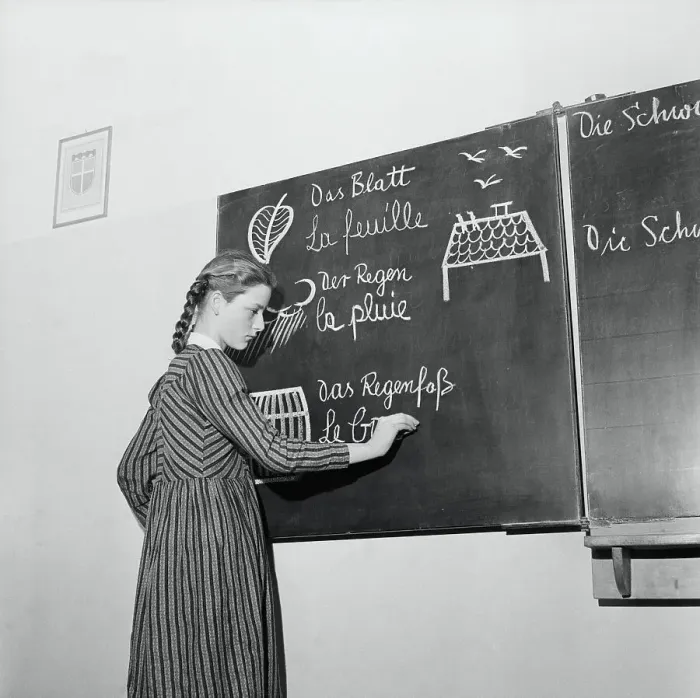 Das Blatt
La feuille
Der Regen
la pluie
Das Regenfaß
Le
Die
Die